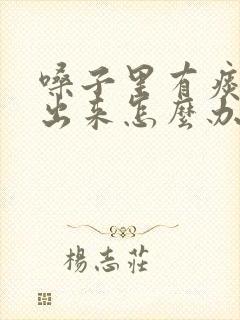 嗓子里有痰
出来怎麼办
楊志莊